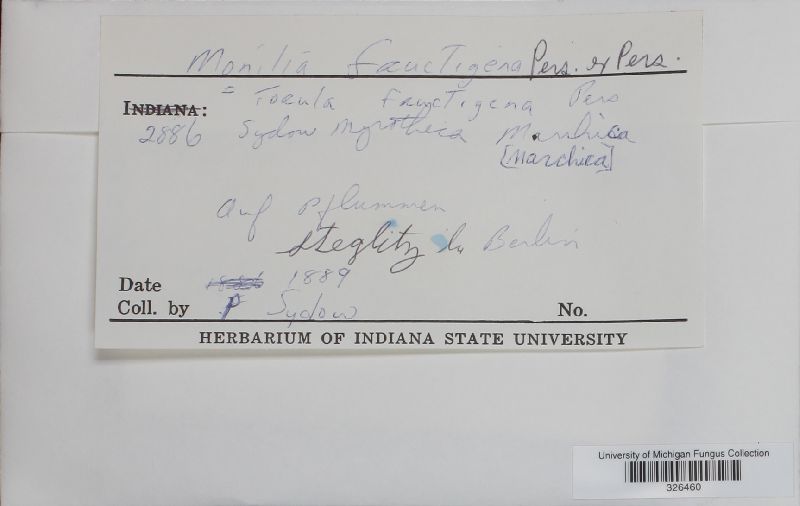 Monilia fructigena Pers. ex Pers.
INDIANA:
= Torula fructigena Pers
2886 Sydow Mycotheca Marchica
[Marchica]
auf Pflummen
Steglitz b. Berlin
Date 1889
Coll. by P Sydow No.
HERBARIUM OF INDIANA STATE UNIVERSITY
University of Michigan Fungus Collection
326460